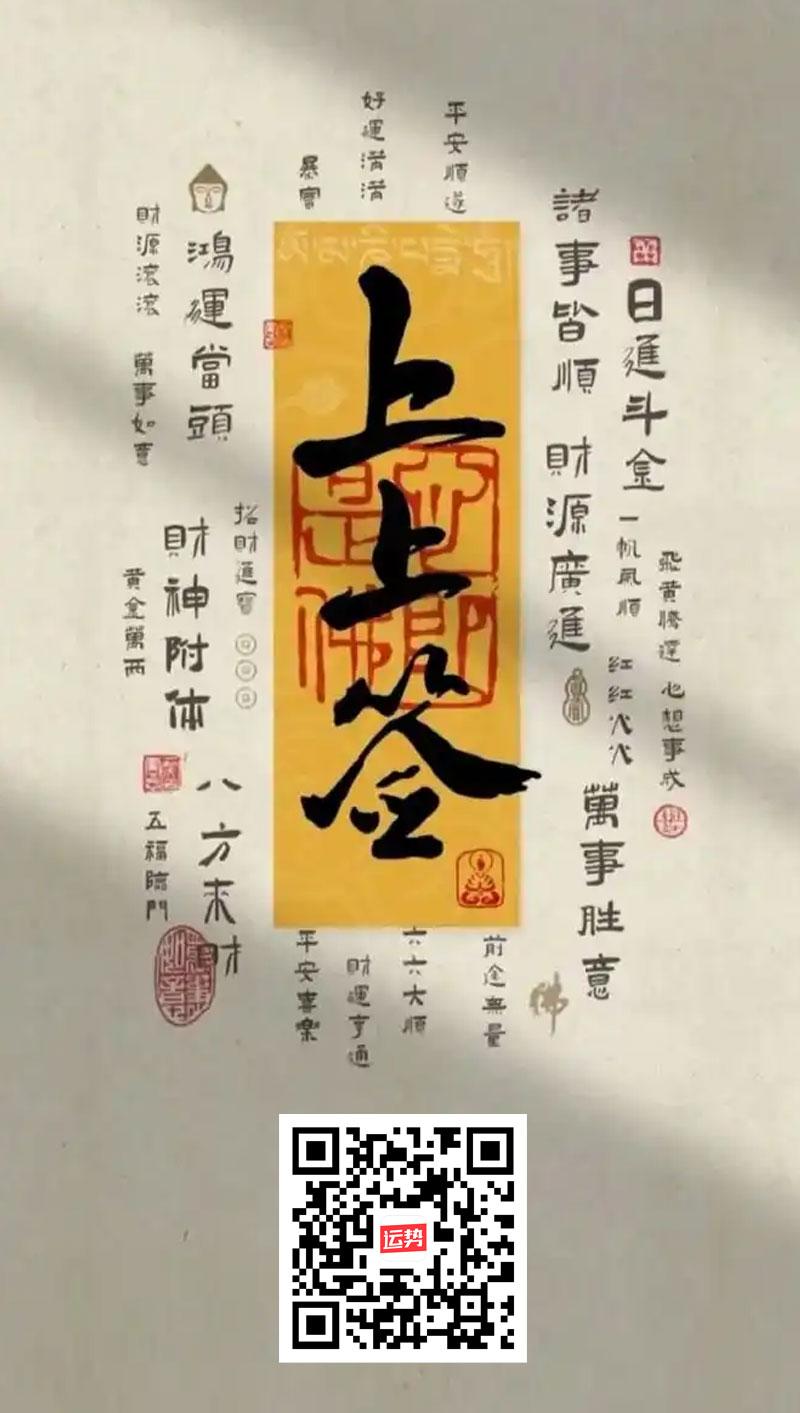 平安順遂
好運滿滿
暴富
日進斗金
諸事皆順 財源廣進
一帆風順
紅紅火火
飛黃騰達 心想事成
萬事胜意
上上签
是心即佛
鴻運當頭
財源滾滾 萬事如意
招財進寶
財神附体
黄金萬兩
八方来財
五福臨門
前途無量
六六大順
財運亨通
平安喜樂
佛
运势